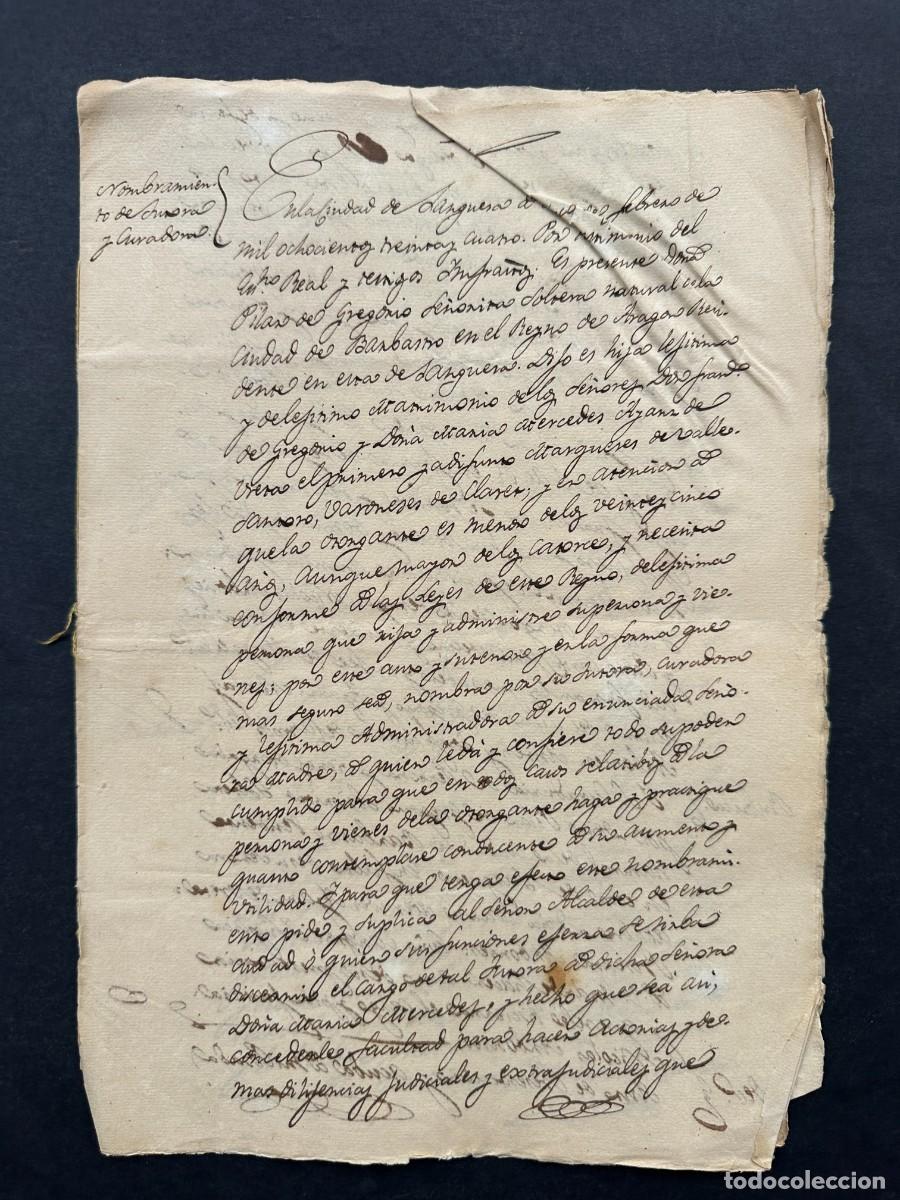 Nombramien-
to de Tutora
y Curadora.
En la Ciudad de Sanguesa a 19 de febrero de
mil ochocientos treinta y cuatro. Por testimonio del
Esno Real y testigos Infraitos: Es presente Doña
Pilar de Gregorio Señorita Soltera natural de la
Ciudad de Barbastro en el Reyno de Aragon Resi-
dente en esta de Sanguesa. Dijo es hija lejitima
y de lejitimo Matrimonio de los Señores Don Francº
de Gregorio y Doña Maria Mercedes Ayanz de
Ureta el primero ya difunto Marqueses de Valle-
Santoro, Varoneses de Claret; y en atencion a
que la otorgante es menor de los veinte y cinco
años, aunque mayor de los catorce, y necesita
conforme a las Leyes de este Reyno, de lejitima
persona que rija y administre su persona y vie-
nes; por este auto y su tenor y en la forma que
mas seguro sea, nombra por su tutora, curadora
y lejitima Administradora a su enunciada Seño-
ra Madre, a quien le da y confiere todo su poder
cumplido para que en todos casos relatibos a la
persona y vienes de la otorgante haga y practique
quanto contemplare conducente a su aumento y
utilidad. Y para que tenga efecto este nombrami-
ento pide y suplica al Señor Alcalde de esta
ciudad ó quien sus funciones ejerza se sirba
discernir el cargo de tal tutora a dicha Señora
Doña Maria Mercedes, y hecho que sea asi,
concederle facultad para hacer Autorias y de-
mas dilijencias judiciales y extrajudiciales que
todocoleccion